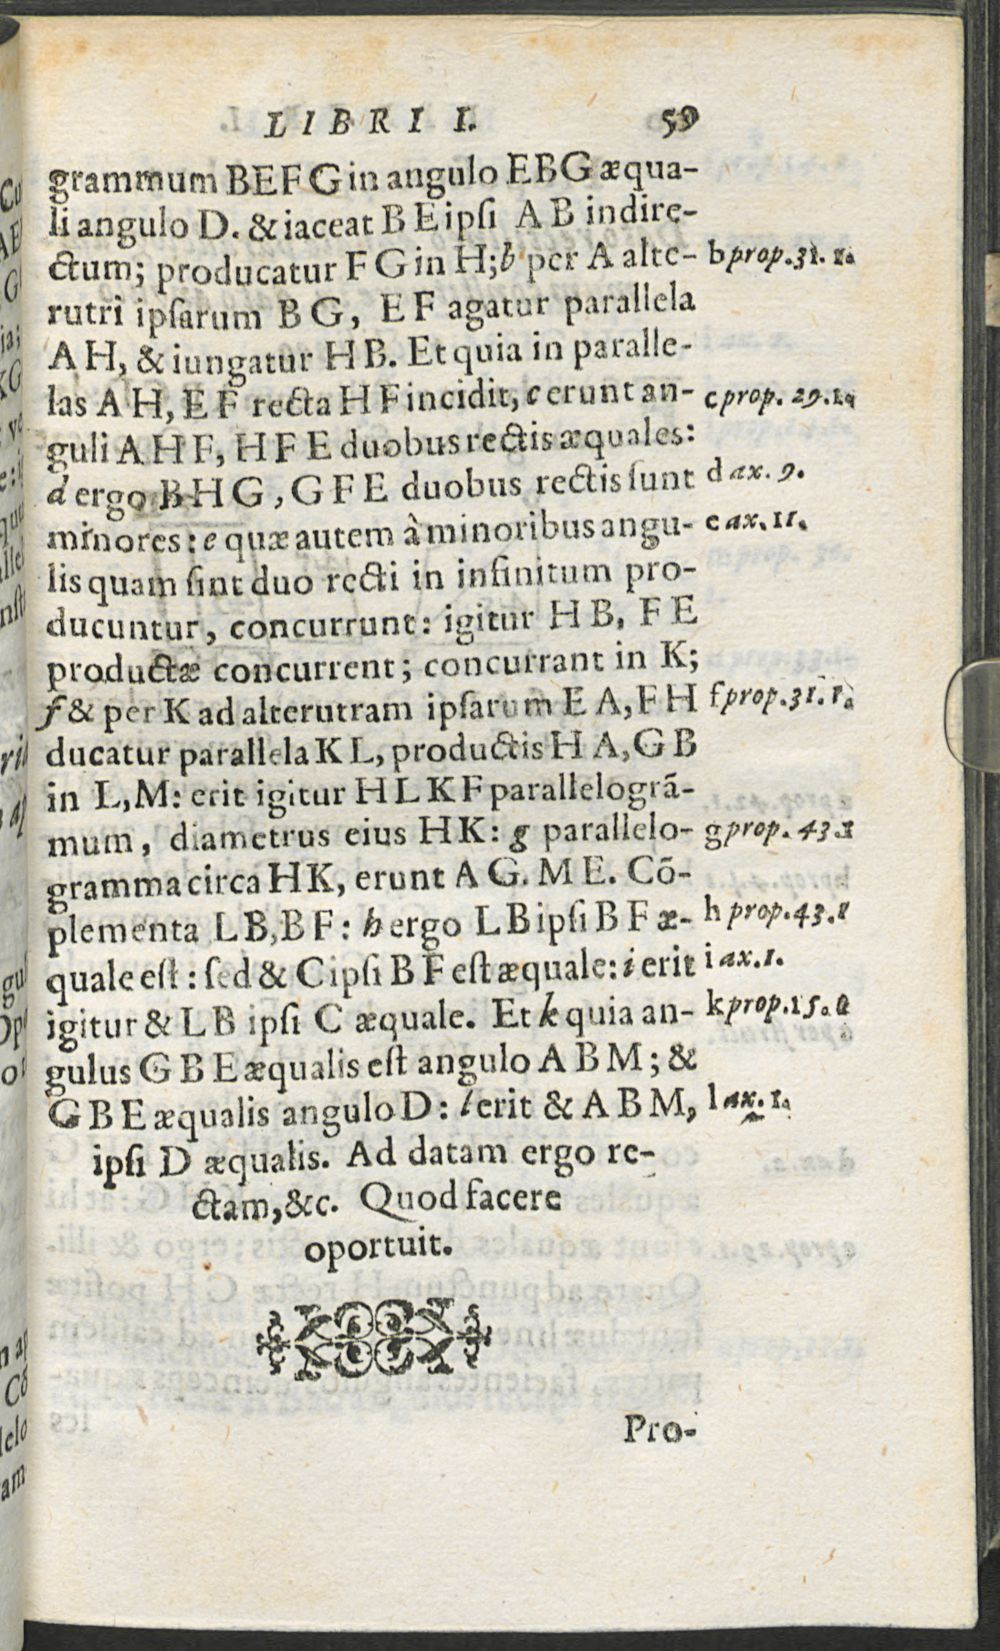 LIBRI I. 59
grammum BEFG in angulo EBG æqua-
li angulo D. & iaceat BE ipſi AB in dire-
ctum; producatur FG in H; b per A alte- b prop. 31. 1.
rutri ipſarum BG, EF agatur parallela
AH, & iungatur HB. Et quia in paralle-
las AH, EF recta HF incidit, c erunt an- c prop. 29. 1.
guli AHF, HFE duobus rectis æquales:
d ergo BHG, GFE duobus rectis ſunt d ax. 9.
minores: e quæ autem à minoribus angu- e ax. 11.
lis quam ſint duo recti in infinitum pro-
ducuntur, concurrunt: igitur HB, FE
productæ concurrent; concurrant in K;
f & per K ad alterutram ipſarum EA, FH f prop. 31. 1.
ducatur parallela KL, productis HA, GB
in L, M: erit igitur HLKF parallelogrã-
mum, diametrus eius HK: g parallelo- g prop. 43. 1
gramma circa HK, erunt AG. ME. Cõ-
plementa LB, BF: h ergo LB ipſi BF æ- h prop. 43. 1
quale eſt: ſed & C ipſi BF eſt æquale: i erit i ax. 1.
igitur & LB ipſi C æquale. Et k quia an- k prop. 15. a
gulus GBE æqualis eſt angulo ABM; &
GBE æqualis angulo D: l erit & ABM, l ax. 1.
ipſi D æqualis. Ad datam ergo re-
ctam, &c. Quod facere
oportuit.
Pro-